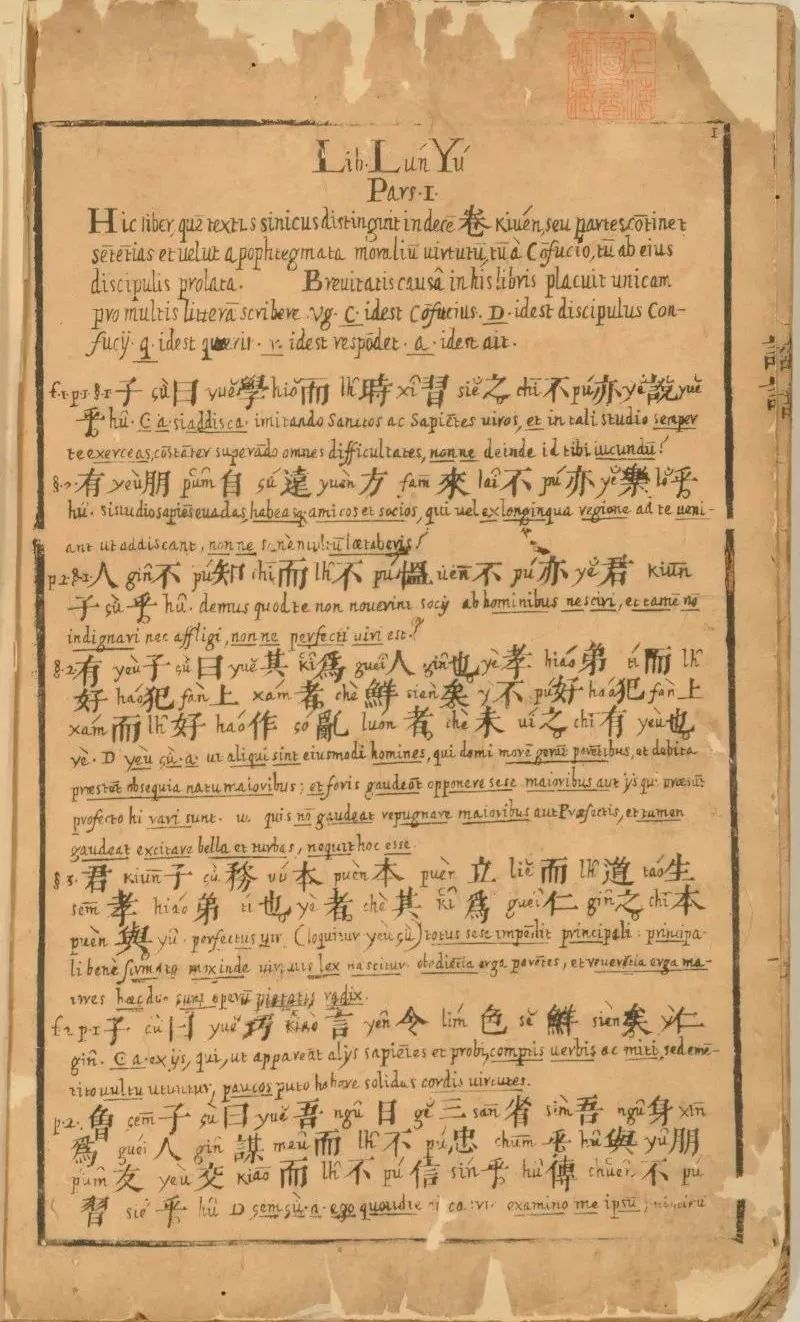 1
Lib. Lún Yú
Pars. I.
Hic liber quē textus sinicus distinguit in decē 卷 Kiuén, seu partes cōtinet
sētētias et velut apophtegmata moraliū uirtutū, tū à Cōfucio, tū ab eius
discipulis prolata. Breuitatis causâ in his libris placuit unicam
pro multis litterā scribere. Vg. C. idest Cōfucius. D. idest discipulus Con-
fucÿ. q. idest quærit. r. idest respōdet. a. idest ait.
f.1.p.1.§.1 子 çù 曰 yuĕ 學 hiŏ 而 lh̑ 時 xî 習 siĕ 之 chī 不 pú 亦 yĕ 說 yuĕ
乎 hû. C. a. si addisca. imitando Sanctos ac Sapiētes uiros, et in tali studio semper
te exerceas, cōstāter superādo omnes difficultates, nonne deinde id tibi iucundū?
§.2. 有 yeù 朋 pûm 自 çú 遠 yuèn 方 fam 來 laî 不 pú 亦 yĕ 樂 lŏ 乎
hû. si studio sapiēs euadas, habeasq. amicos et socios, qui uel ex longinqua regione ad te ueni-
ant ut addiscant, nonne
p.2.§.2 人 gin̂ 不 pú 知 chī 而 lh̑ 不 pú 慍 uén 不 pú 亦 yĕ 君 kiūn
子 çù 乎 hû. demus quod te non nouerint socÿ ab hominibus nesciri, et tamē nō
indignari nec affligi, nonne perfecti uiri est?
§.2 有 yeù 子 çù 曰 yuĕ 其 kî 爲 gueî 人 gin̂ 也 yè 孝 hiáo 弟 tí 而 lh̑
好 haó 犯 fán 上 xám 者 chè 鮮 sièn 矣 y 不 pú 好 haó 犯 fán 上
xám 而 lh̑ 好 haó 作 ço 亂 luon 者 chè 未 uí 之 chī 有 yeù 也
yè. D yeù çù. a. ut aliqui sint eiusmodi homines, qui domi morē gerāt parētibus, et debita
præstēt obsequia natu maioribus; et foris gaudeāt opponere sese maioribus aut ÿs qui præsūt
profecto hi rari sunt. quis nō gaudeat repugnare maioribus aut Præfectis, et tamen
gaudeat excitare bella et turbas, nequit hoc esse.
§.3. 君 kiūn 子 çù 務 vú 本 puèn 本 puèn 立 liĕ 而 lh̑ 道 táo 生
sem̄ 孝 hiáo 弟 tí 也 yè 者 chè 其 kî 爲 gueî 仁 gin̂ 之 chī 本
puèn 與 yû. perfectus uir (loquitur yeù çù) totus sese impēdit principali. principa-
li benè firmato mox inde uirtutis lex nascitur. obediētia erga parētes, et reuerētia erga ma-
iores hæc duo sunt operū pietatis radix.
f.2 p.1 子 çù 曰 yuĕ 巧 kiào 言 yên 令 lím 色 sĕ 鮮 sièn 矣 y 仁
gin̂. C. a. ex ÿs, qui, ut appareāt alÿs sapiētes et probi, comptis uerbis ac miti, sed emē-
tito uultu utuntur, paucos puto habere solidas cordis uirtutes.
p.2. 曾 çem̄ 子 çù 曰 yuĕ 吾 ngû 日 gĕ 三 san̄ 省 sìm 吾 ngû 身 xin̄
爲 guéi 人 gin̂ 謀 meû 而 lh̑ 不 pú 忠 chūm 乎 hû 與 yû 朋
pûm 友 yeù 交 kiāo 而 lh̑ 不 pú 信 sín 乎 hû 傳 chuên 不 pú
習 siĕ 乎 hû D çem̄ çù. a. ego quotidie examino me ipsū